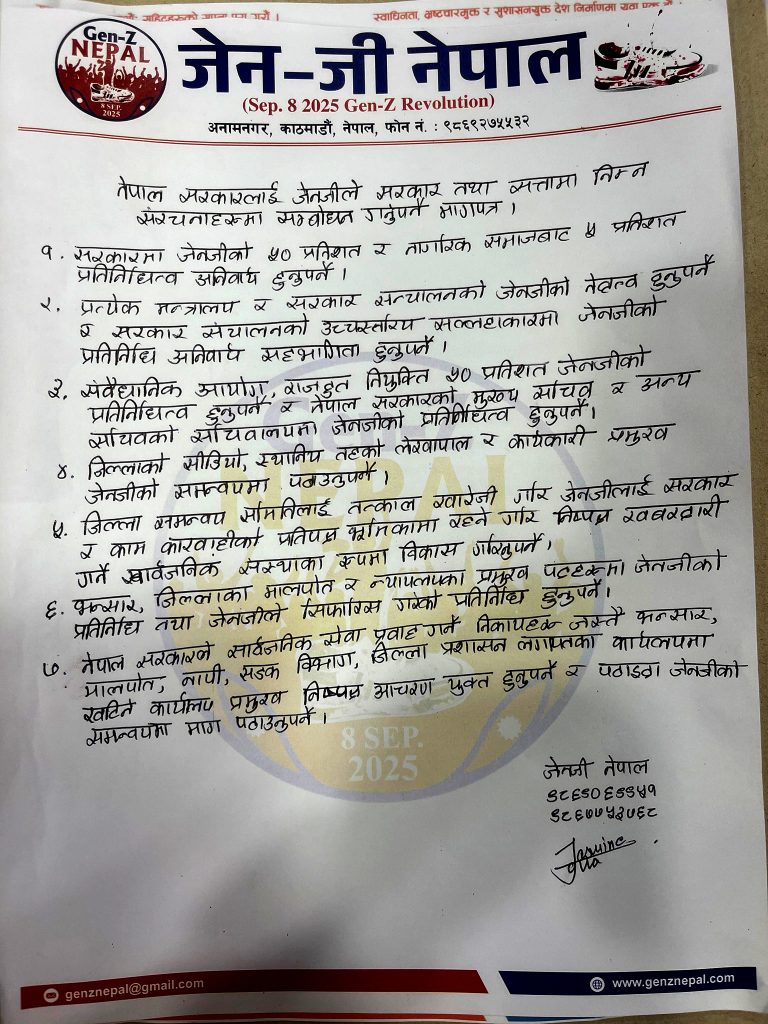 स्वाधिनता, भ्रष्टचारमुक्त र सुशासनयुक्त देश निर्माणमा यवा
Gen-Z
NEPAL
8 SEP.
2025
जेन-जी नेपाल
(Sep. 8 2025 Gen-Z Revolution)
अनामनगर, काठमाडौं, नेपाल, फोन नं. : ९८६९२७५५३२
नेपाल सरकारलाई जेनजीले सरकार तथा सत्तामा निम्न
संरचनाहरूमा सम्बोधन गर्नुपर्ने मागपत्र ।
१. सरकारमा जेनजीको ५० प्रतिशत र नागरिक समाजबाट ५ प्रतिशत
प्रतिनिधित्व अनिवार्य हुनुपर्ने ।
२. प्रत्येक मन्त्रालय र सरकार सन्चालनको जेनजीको नेतृत्व हुनुपर्ने
र सरकार संचालनको उच्चस्तरिय सल्लहाकारमा जेनजीको
प्रतिनिधि अनिवार्य सहभागिता हुनुपर्ने ।
३. संवैधानिक आयोग, राजदुत नियुक्ति ५० प्रतिशत जेनजीको
प्रतिनिधित्व हुनुपर्ने र नेपाल सरकारको मुख्य सचिव र अन्य
सचिवको सचिवालयमा जेनजीको प्रतिनिधित्व हुनुपर्ने ।
४. जिल्लाको सीडियो, स्थानिय तहको लेखापाल र कार्यकारी प्रमुख
जेनजीको समन्वयमा पठाउनुपर्ने ।
५. जिल्ला समन्वय समितिलाई तत्काल खारेजी गरि जेनजीलाई सरकार
र काम कारवाहीको प्रतिपक्ष भूमिकामा रहने गरि निष्पक्ष खबरदारी
गर्ने सार्वजनिक संस्थाका रूपमा विकास गरिनुपर्ने ।
६. भन्सार, जिल्लाका मालपोत र न्यायलयका प्रमुख पदहरूमा जेनजीको
प्रतिनिधि तथा जेनजीले सिफारिस गरेको प्रतिनिधि हुनुपर्ने ।
७. नेपाल सरकारले सार्वजनिक सेवा प्रवाह गर्ने निकायहरू जस्तै भन्सार,
मालपोत, नापी, सडक विभाग, जिल्ला प्रशासन लगायतका कार्यलयमा
खटिने कार्यालय प्रमुख निष्पक्ष आचरण युक्त हुनुपर्ने र पठाउदा जेनजीको
समन्वयमा माग पठाउनुपर्ने ।
8 SEP.
2025
जेनजी नेपाल
९८६९०६९९५१
९८६७७५३७६८
Jasmine
genznepal@gmail.com
www.genznepal.com